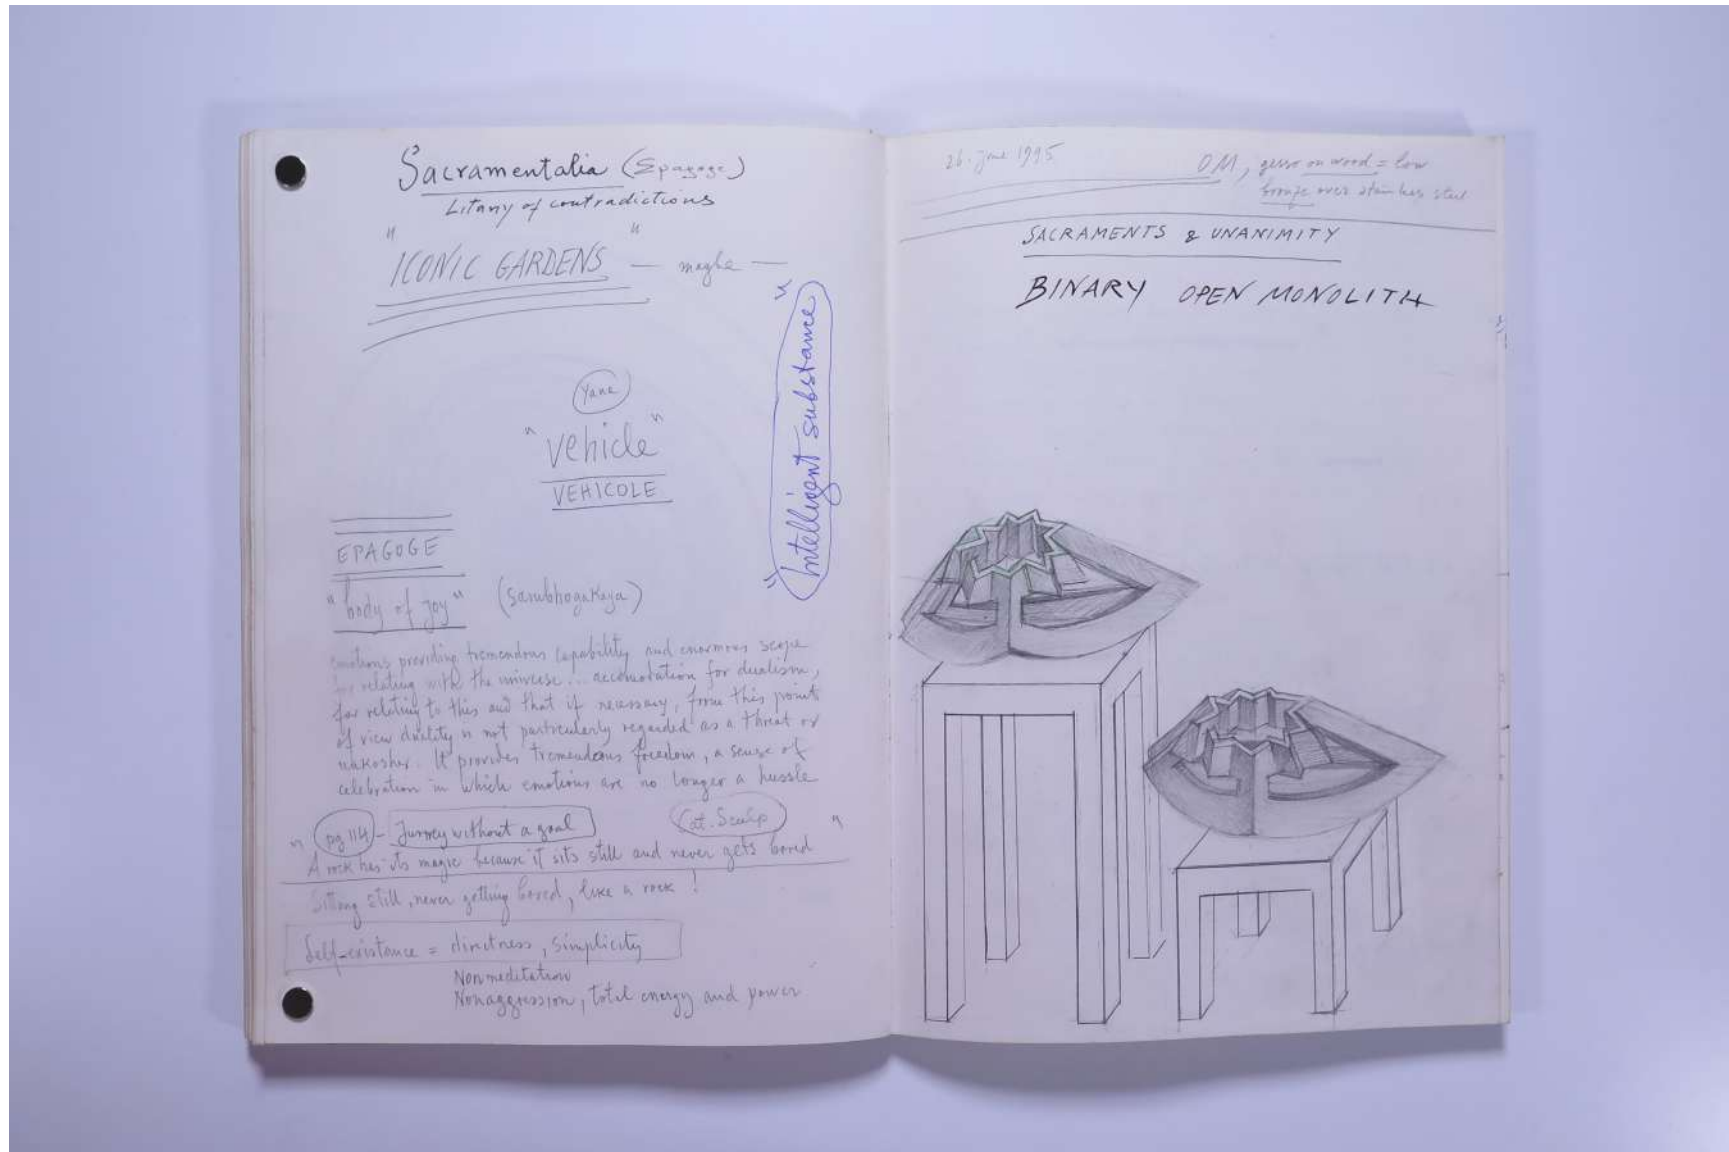 Sacramentalia (Epagoge)
Litany of contradictions
"ICONIC GARDENS" — maybe —
"Intelligent substance"
Yana
"vehicle"
VEHICOLE
EPAGOGE
"body of joy" (Sambhogakaya)
emotions providing tremendous capability and enormous scope
for relating with the universe... accomodation for dualism,
for relating to this and that if necessary, from this point
of view duality is not particularly regarded as a threat or
unkosher. It provides tremendous freedom, a sense of
celebration in which emotions are no longer a hussle
pg 114 - Jurney without a goal Cat. Sculp
"A rock has its magic because it sits still and never gets bored"
Sitting still, never getting bored, like a rock!
Self-existance = directness, simplicity
Nonmeditation
Nonaggression, total energy and power
26. June 1995
OM, gesso on wood = low
bronze over stainless steel
SACRAMENTS & UNANIMITY
BINARY OPEN MONOLITH